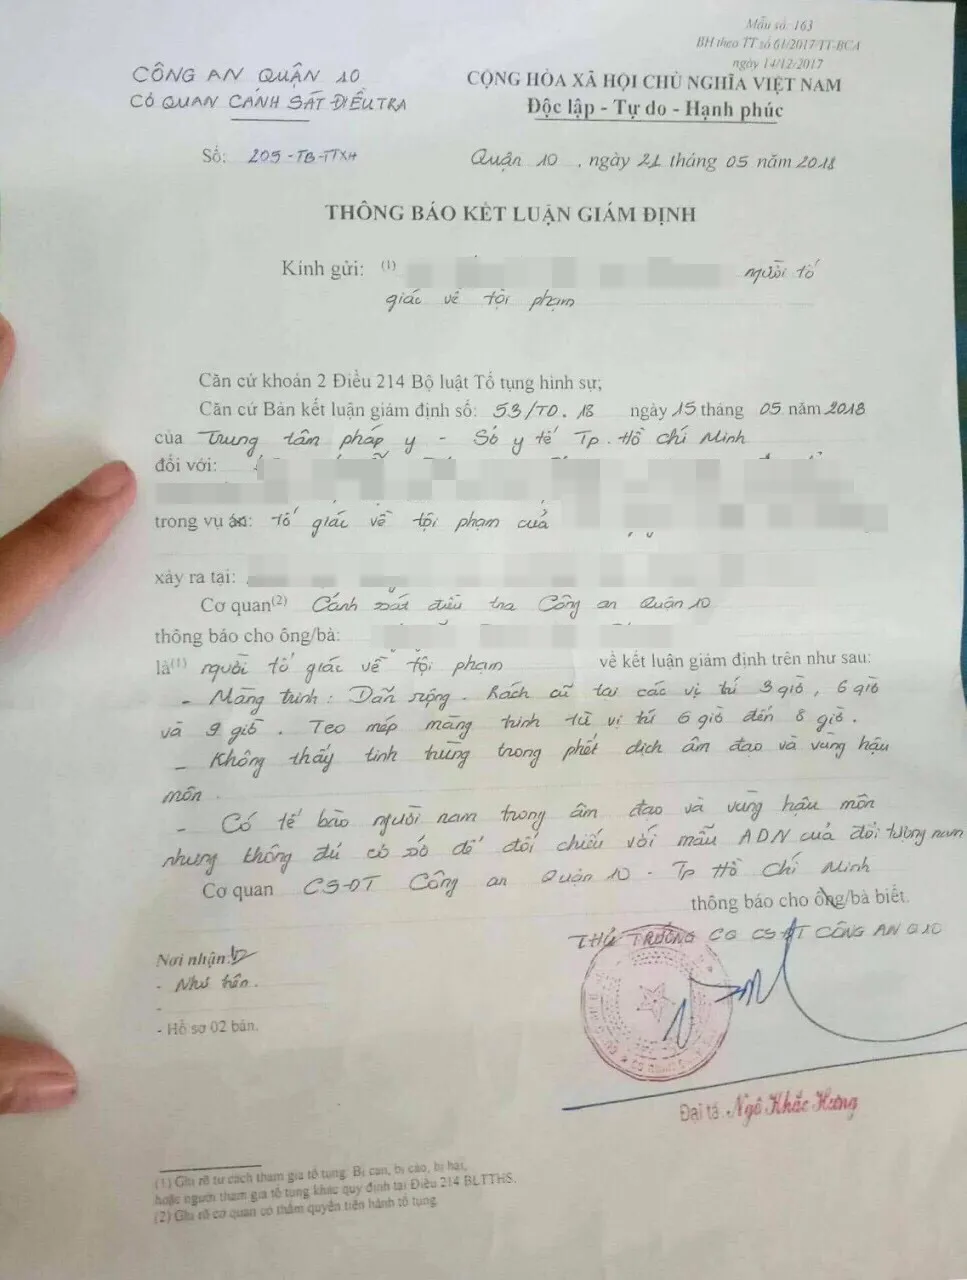 Mẫu số: 163
BH theo TT số 61/2017/TT-BCA
ngày 14/12/2017
CÔNG AN QUẬN 10
CƠ QUAN CẢNH SÁT ĐIỀU TRA
CỘNG HÒA XÃ HỘI CHỦ NGHĨA VIỆT NAM
Độc lập - Tự do - Hạnh phúc
Số: 205-TB-TTXH
Quận 10, ngày 21 tháng 05 năm 2018
THÔNG BÁO KẾT LUẬN GIÁM ĐỊNH
Kính gửi: (1) người tố
giác về tội phạm
Căn cứ khoản 2 Điều 214 Bộ luật Tố tụng hình sự;
Căn cứ Bản kết luận giám định số: 53/TD.18 ngày 15 tháng 05 năm 2018
của Trung tâm pháp y - Sở y tế Tp. Hồ Chí Minh
đối với:
trong vụ án: tố giác về tội phạm của
xảy ra tại:
Cơ quan(2) Cảnh sát điều tra Công an Quận 10
thông báo cho ông/bà:
là(1) người tố giác về tội phạm về kết luận giám định trên như sau:
- Màng trinh: Dãn rộng. Rách cũ tại các vị trí 3 giờ, 6 giờ
và 9 giờ. Teo mép màng trinh từ vị trí 6 giờ đến 8 giờ.
- Không thấy tinh trùng trong phết dịch âm đạo và vùng hậu
môn.
- Có tế bào người nam trong âm đạo và vùng hậu môn
nhưng không đủ cơ số để đối chiếu với mẫu ADN của đối tượng nam
Cơ quan CSĐT Công an Quận 10 - Tp Hồ Chí Minh
thông báo cho ông/bà biết.
THỦ TRƯỞNG CQ CSĐT CÔNG AN Q10
Nơi nhận:
- Như trên.
-
- Hồ sơ 02 bản.
Đại tá Ngô Khắc Hưng
(1) Ghi rõ tư cách tham gia tố tụng: Bị can, bị cáo, bị hại,
hoặc người tham gia tố tụng khác quy định tại Điều 214 BLTTHS.
(2) Ghi rõ cơ quan có thẩm quyền tiến hành tố tụng